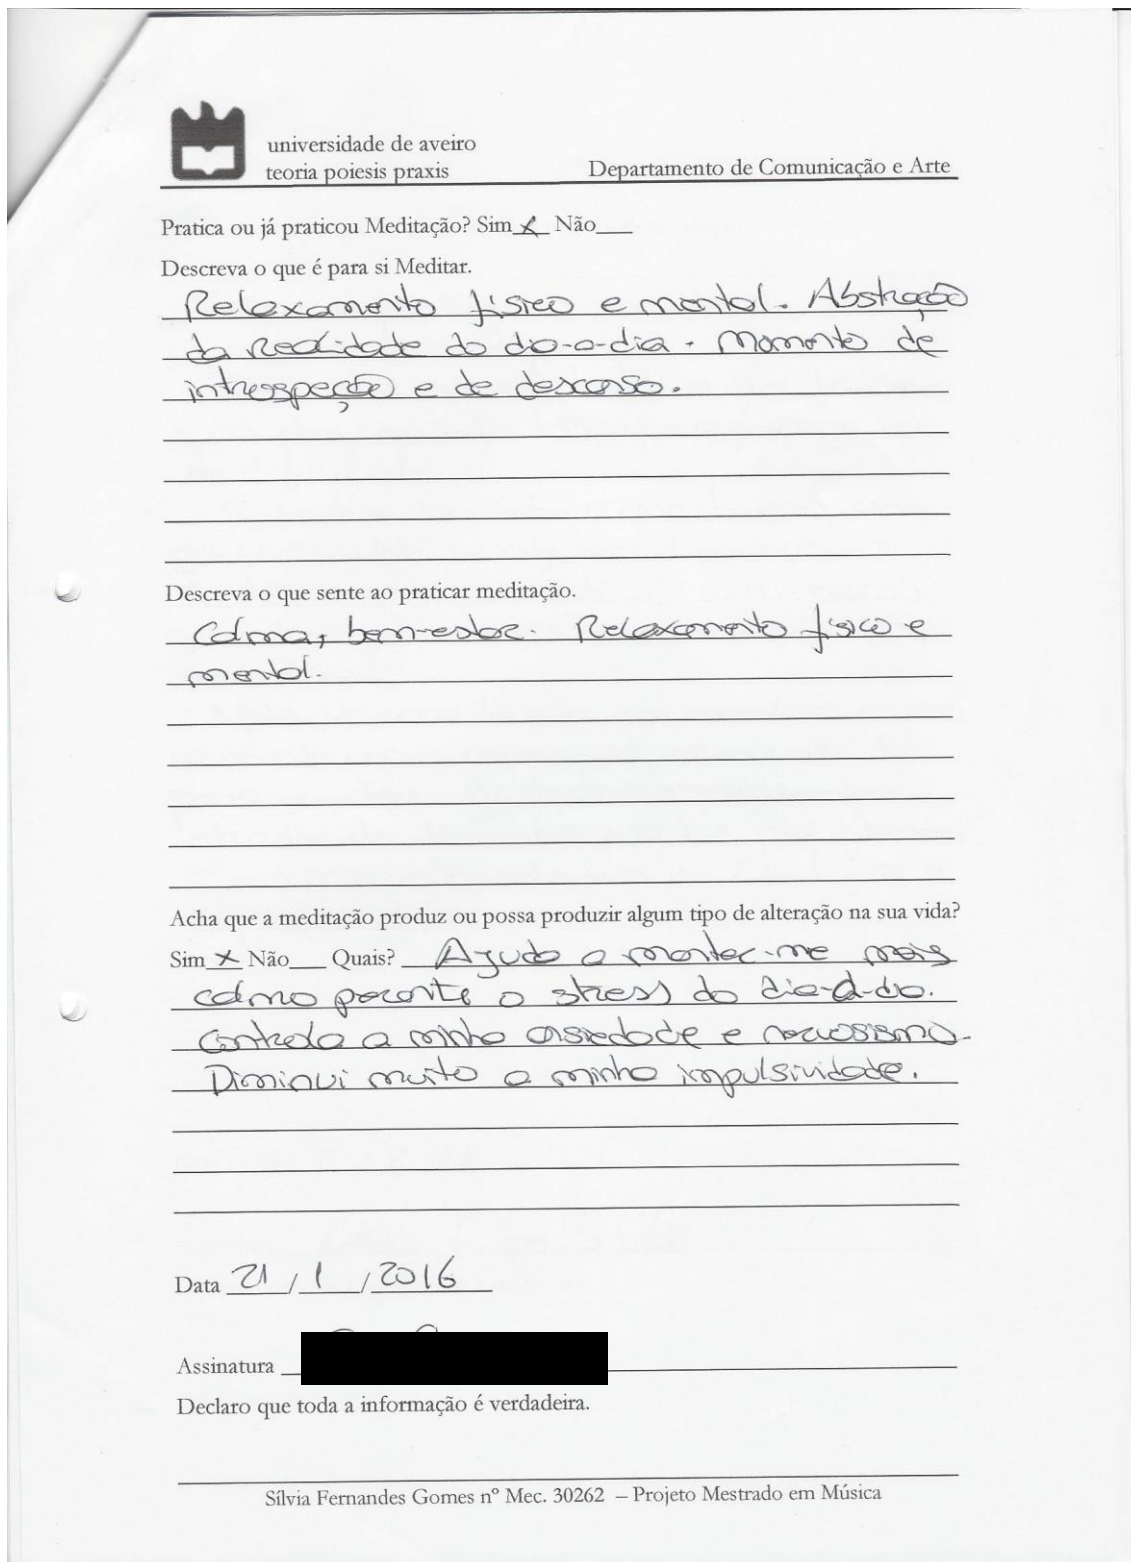 universidade de aveiro
teoria poiesis praxis
Departamento de Comunicação e Arte
Pratica ou já praticou Meditação? Sim_x_ Não___
Descreva o que é para si Meditar.
Relaxamento físico e mental. Abstração
da realidade do dia-a-dia. Momento de
introspeção e de descanso.
Descreva o que sente ao praticar meditação.
Calma, bem-estar. Relaxamento físico e
mental.
Acha que a meditação produz ou possa produzir algum tipo de alteração na sua vida?
Sim_x_ Não___ Quais? Ajuda a manter-me mais
calmo perante o stress do dia-a-dia.
Controla a minha ansiedade e nervosismo.
Diminui muito a minha impulsividade.
Data 21/1/2016
Assinatura
Declaro que toda a informação é verdadeira.
Sílvia Fernandes Gomes nº Mec. 30262 – Projeto Mestrado em Música